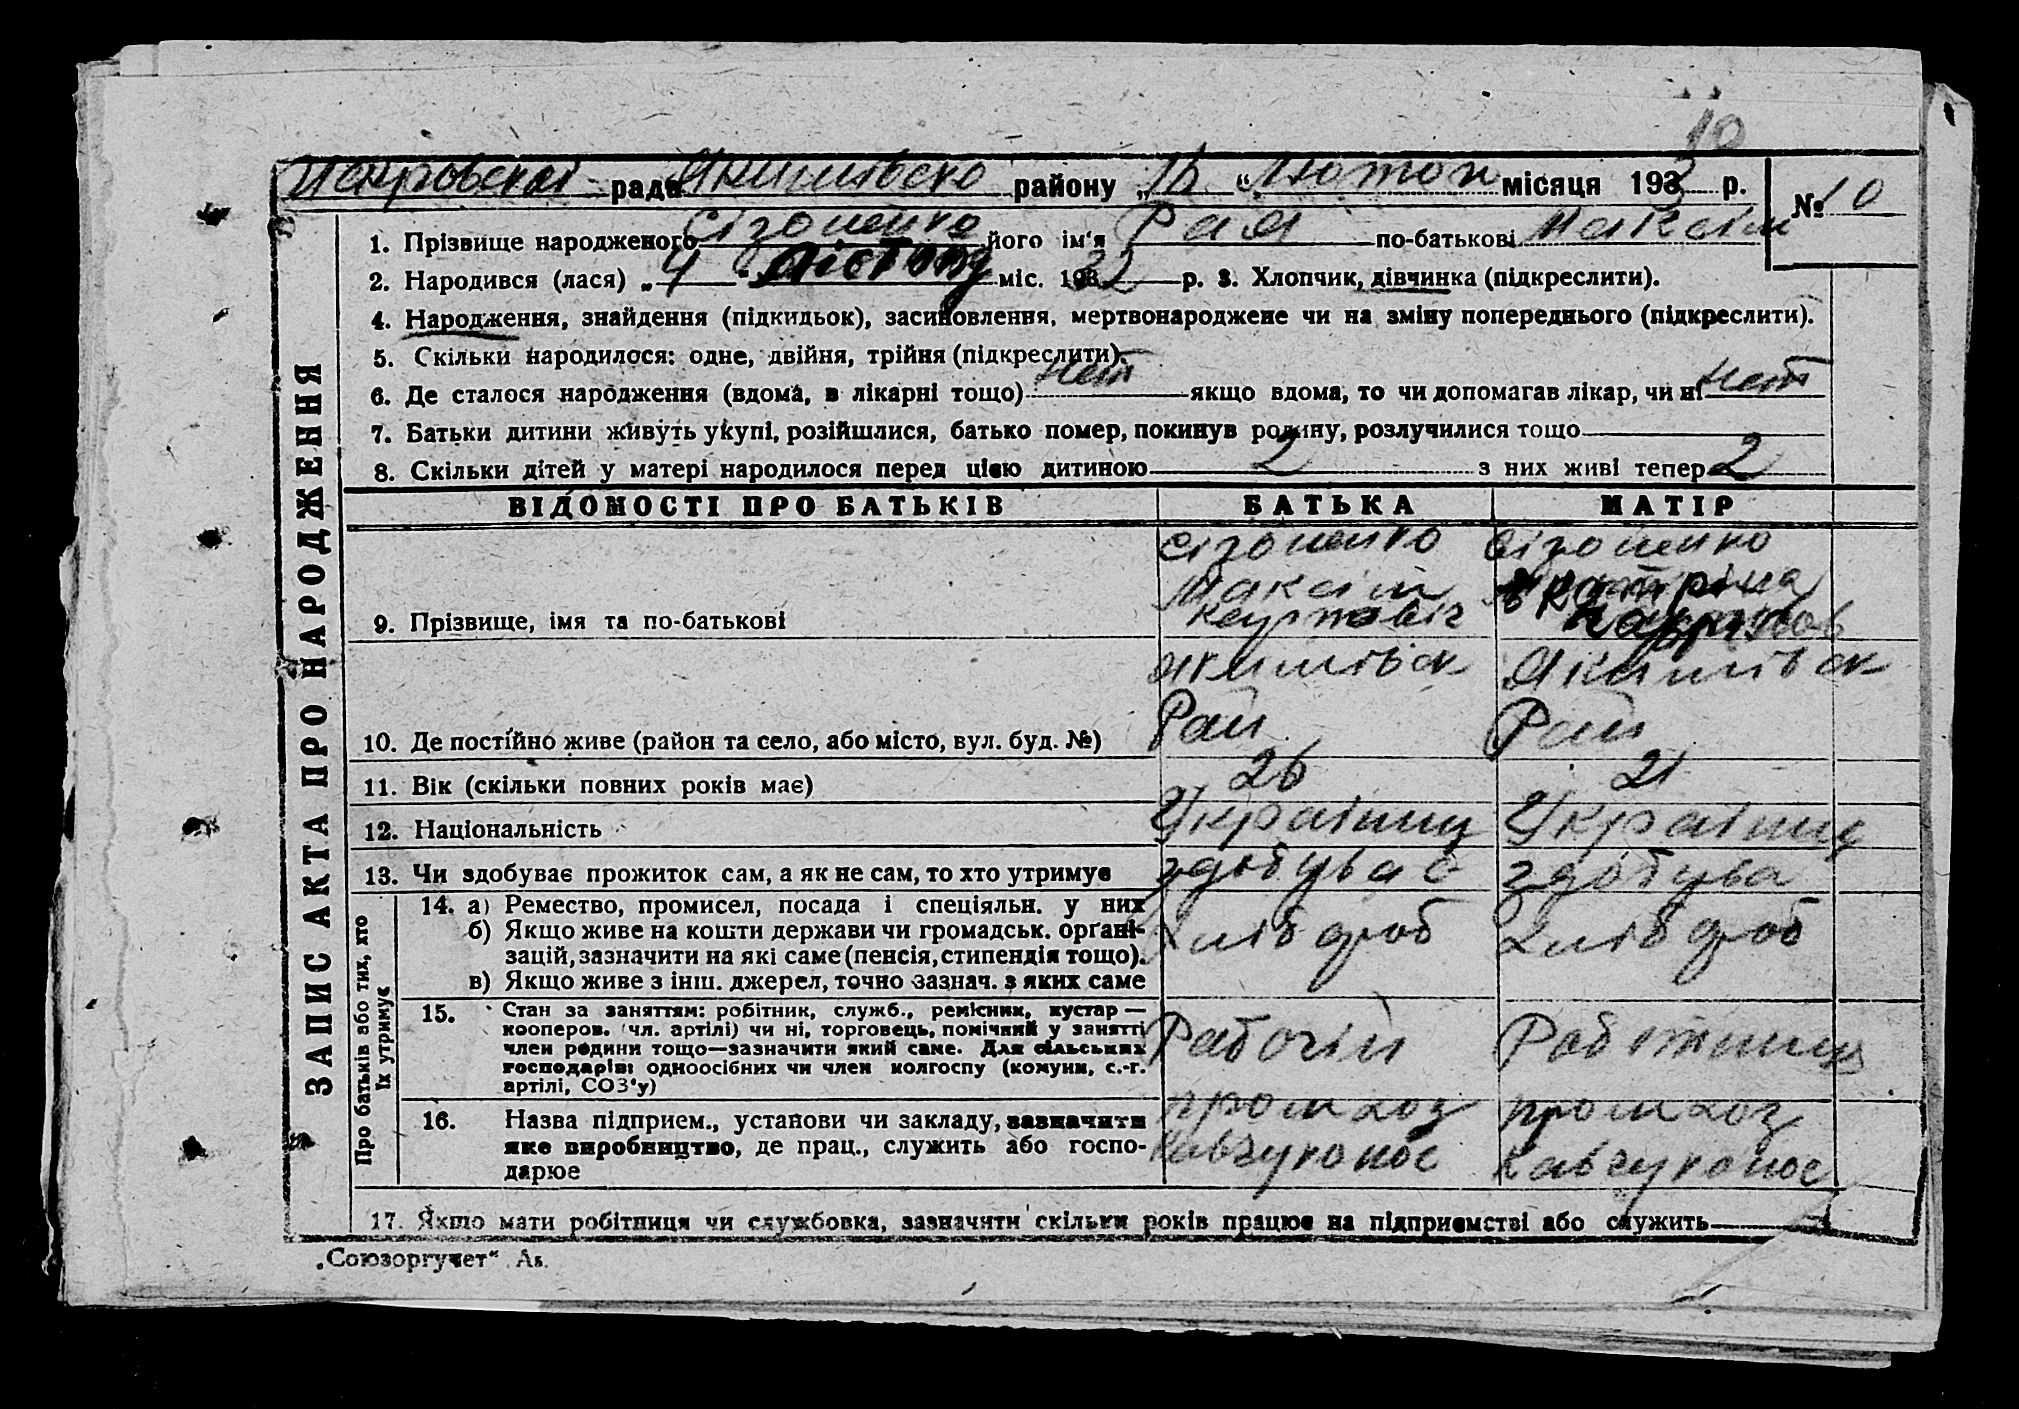 10
раде Якимівсько району „16“ лютого місяця 193 р.
№ 10
ЗАПИС АКТА ПРО НАРОДЖЕННЯ
1. Прізвище народженого Сізоненко його ім'я Рая по-батькові Максім
2. Народився (лася) „4 “ міс. 1932 р. 3. Хлопчик, дівчинка (підкреслити).
4. Народження, знайдення (підкидьок), засиновлення, мертвонароджене чи на зміну попереднього (підкреслити).
5. Скільки народилося: одне, двійня, трійня (підкреслити).
6. Де сталося народження (вдома, в лікарні тощо) нет якщо вдома, то чи допомагав лікар, чи ні нет
7. Батьки дитини живуть укупі, розійшлися, батько помер, покинув родину, розлучилися тощо
8. Скільки дітей у матері народилося перед цією дитиною 2 з них живі тепер 2
ВІДОМОСТІ ПРО БАТЬКІВ БАТЬКА МАТІР
Сізоненко Сізоненко
Максім
9. Прізвище, імя та по-батькові
Якимівск Якимівск
Рай Рай
10. Де постійно живе (район та село, або місто, вул. буд. №)
11. Вік (скільки повних років має) 26 21
12. Національність Україниц Україниц
13. Чи здобуває прожиток сам, а як не сам, то хто утримує здобуває здобува
Про батьків або тих, хто їх утримує
14. а) Ремество, промисел, посада і спеціяльн. у них
б) Якщо живе на кошти держави чи громадськ. орґані- Хлібороб Хлібороб
зацій, зазначити на які саме (пенсія, стипендія тощо).
в) Якщо живе з інш. джерел, точно зазнач. з яких саме
15. Стан за заняттям: робітник, служб., ремісник, кустар —
кооперов. (чл. артілі) чи ні, торговець, помічний у занятті
член родини тощо—зазначити який саме. Для сільських Рабочій Работниця
господарів: одноосібних чи член колгоспу (комуни, с.-г.
артілі, СОЗ'у)
16. Назва підприєм., установи чи закладу, зазначити промхоз промхоз
яке виробництво, де прац., служить або госпо- Кавчуконос Кавчуконос
дарює
17. Якщо мати робітниця чи службовка, зазначити скільки років працює на підприємстві або служить
„Союзоргучет“